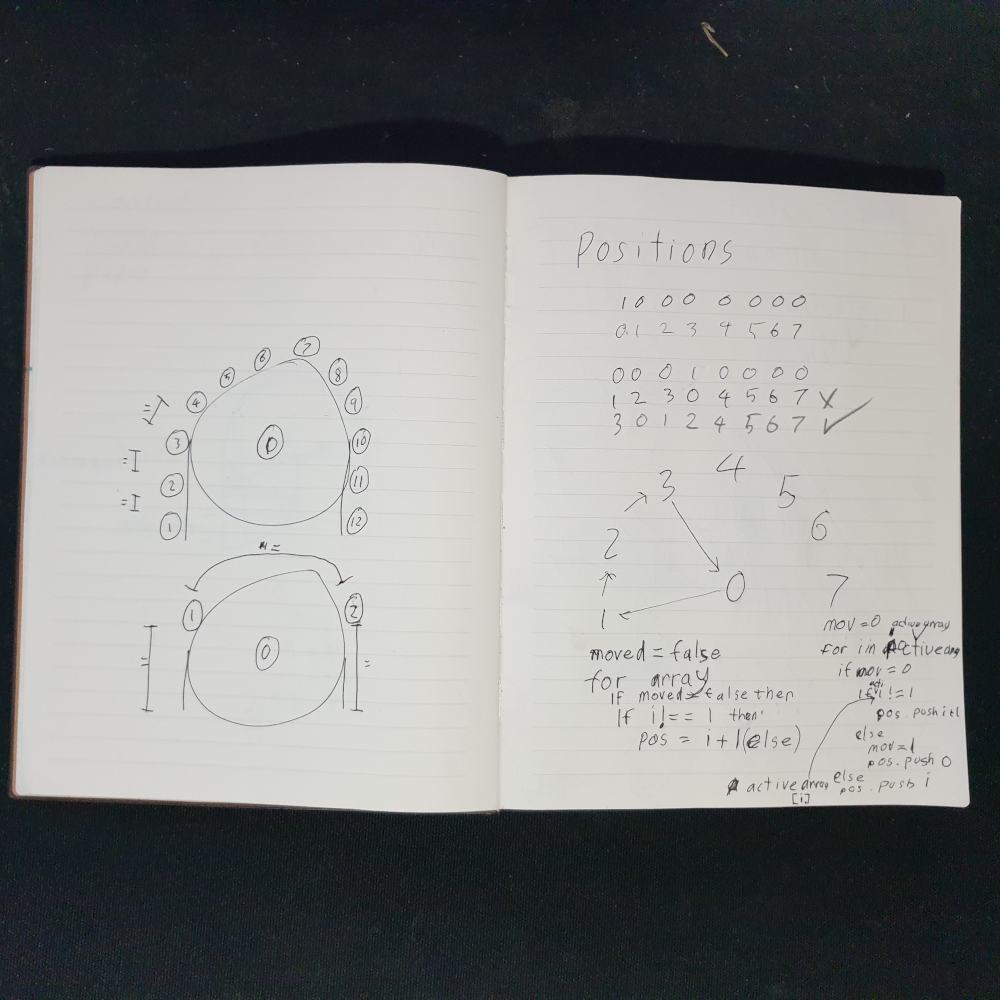 7
6
8
5
4
9
3
0
10
2
11
1
12
1
2
0
Positions
1 0 0 0 0 0 0 0
0 1 2 3 4 5 6 7
0 0 0 1 0 0 0 0
1 2 3 0 4 5 6 7 X
3 0 1 2 4 5 6 7 ✓
4
3
5
6
2
0
7
1
moved = false
for array
If moved = false then
If i !== 1 then
pos = i + 1 (else)
mov = 0
for i in
if mov = 0
if != 1
pos. push i+1
else
mov = 1
pos. push 0
else
pos. push i
active array
[i]